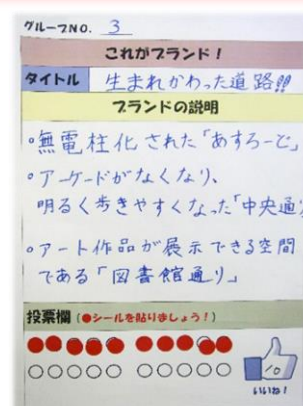 グループNO. 3
これがブランド！
タイトル 生まれかわった道路!!
ブランドの説明
・無電柱化された「あすろーど」
・アーケードがなくなり、
明るく歩きやすくなった「中央通
・アート作品が展示できる空間
である「図書館通り」
投票欄（●シールを貼りましょう！）
10
いいね！